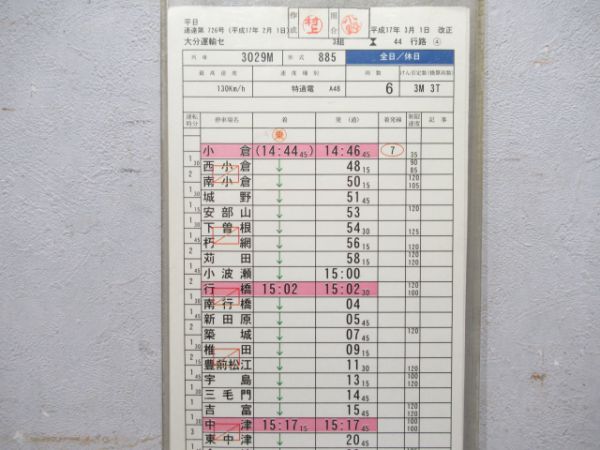 平日
達達第 726号 (平成17年 2月 1日)
作成
村上
照合
平成17年 3月 1日 改正
大分運輸セ
3組
44 行路 ④
列車 3029M 形式 885 全日/休日
最高速度 速度種別 両数 けん引定数(換算両数)
130Km/h 特通電 A48 6 3M 3T
運転時分 停車場名 着 発(通) 着発線 制限速度 記事
乗
小倉 (14:44 45) 14:46 45 7 35
1 30 西小倉 ↓ 48 15 90 85
2 南小倉 ↓ 50 15 120 105
1 30 城野 ↓ 51 45
1 15 安部山 ↓ 53 120
1 30 下曽根 ↓ 54 30 125
1 45 朽網 ↓ 56 15 115
2 苅田 ↓ 58 15 120
1 45 小波瀬 ↓ 15:00
2 行橋 15:02 15:02 30 120 100
1 30 南行橋 ↓ 04
1 45 新田原 ↓ 05 45
2 築城 ↓ 07 45 120
1 30 椎田 ↓ 09 15
2 15 豊前松江 ↓ 11 30 120
1 45 宇島 ↓ 13 15 100 120
1 30 三毛門 ↓ 14 45
1 吉富 ↓ 15 45 120
1 30 中津 15:17 15 15:17 45 120 100
3 東中津 ↓ 20 45 120